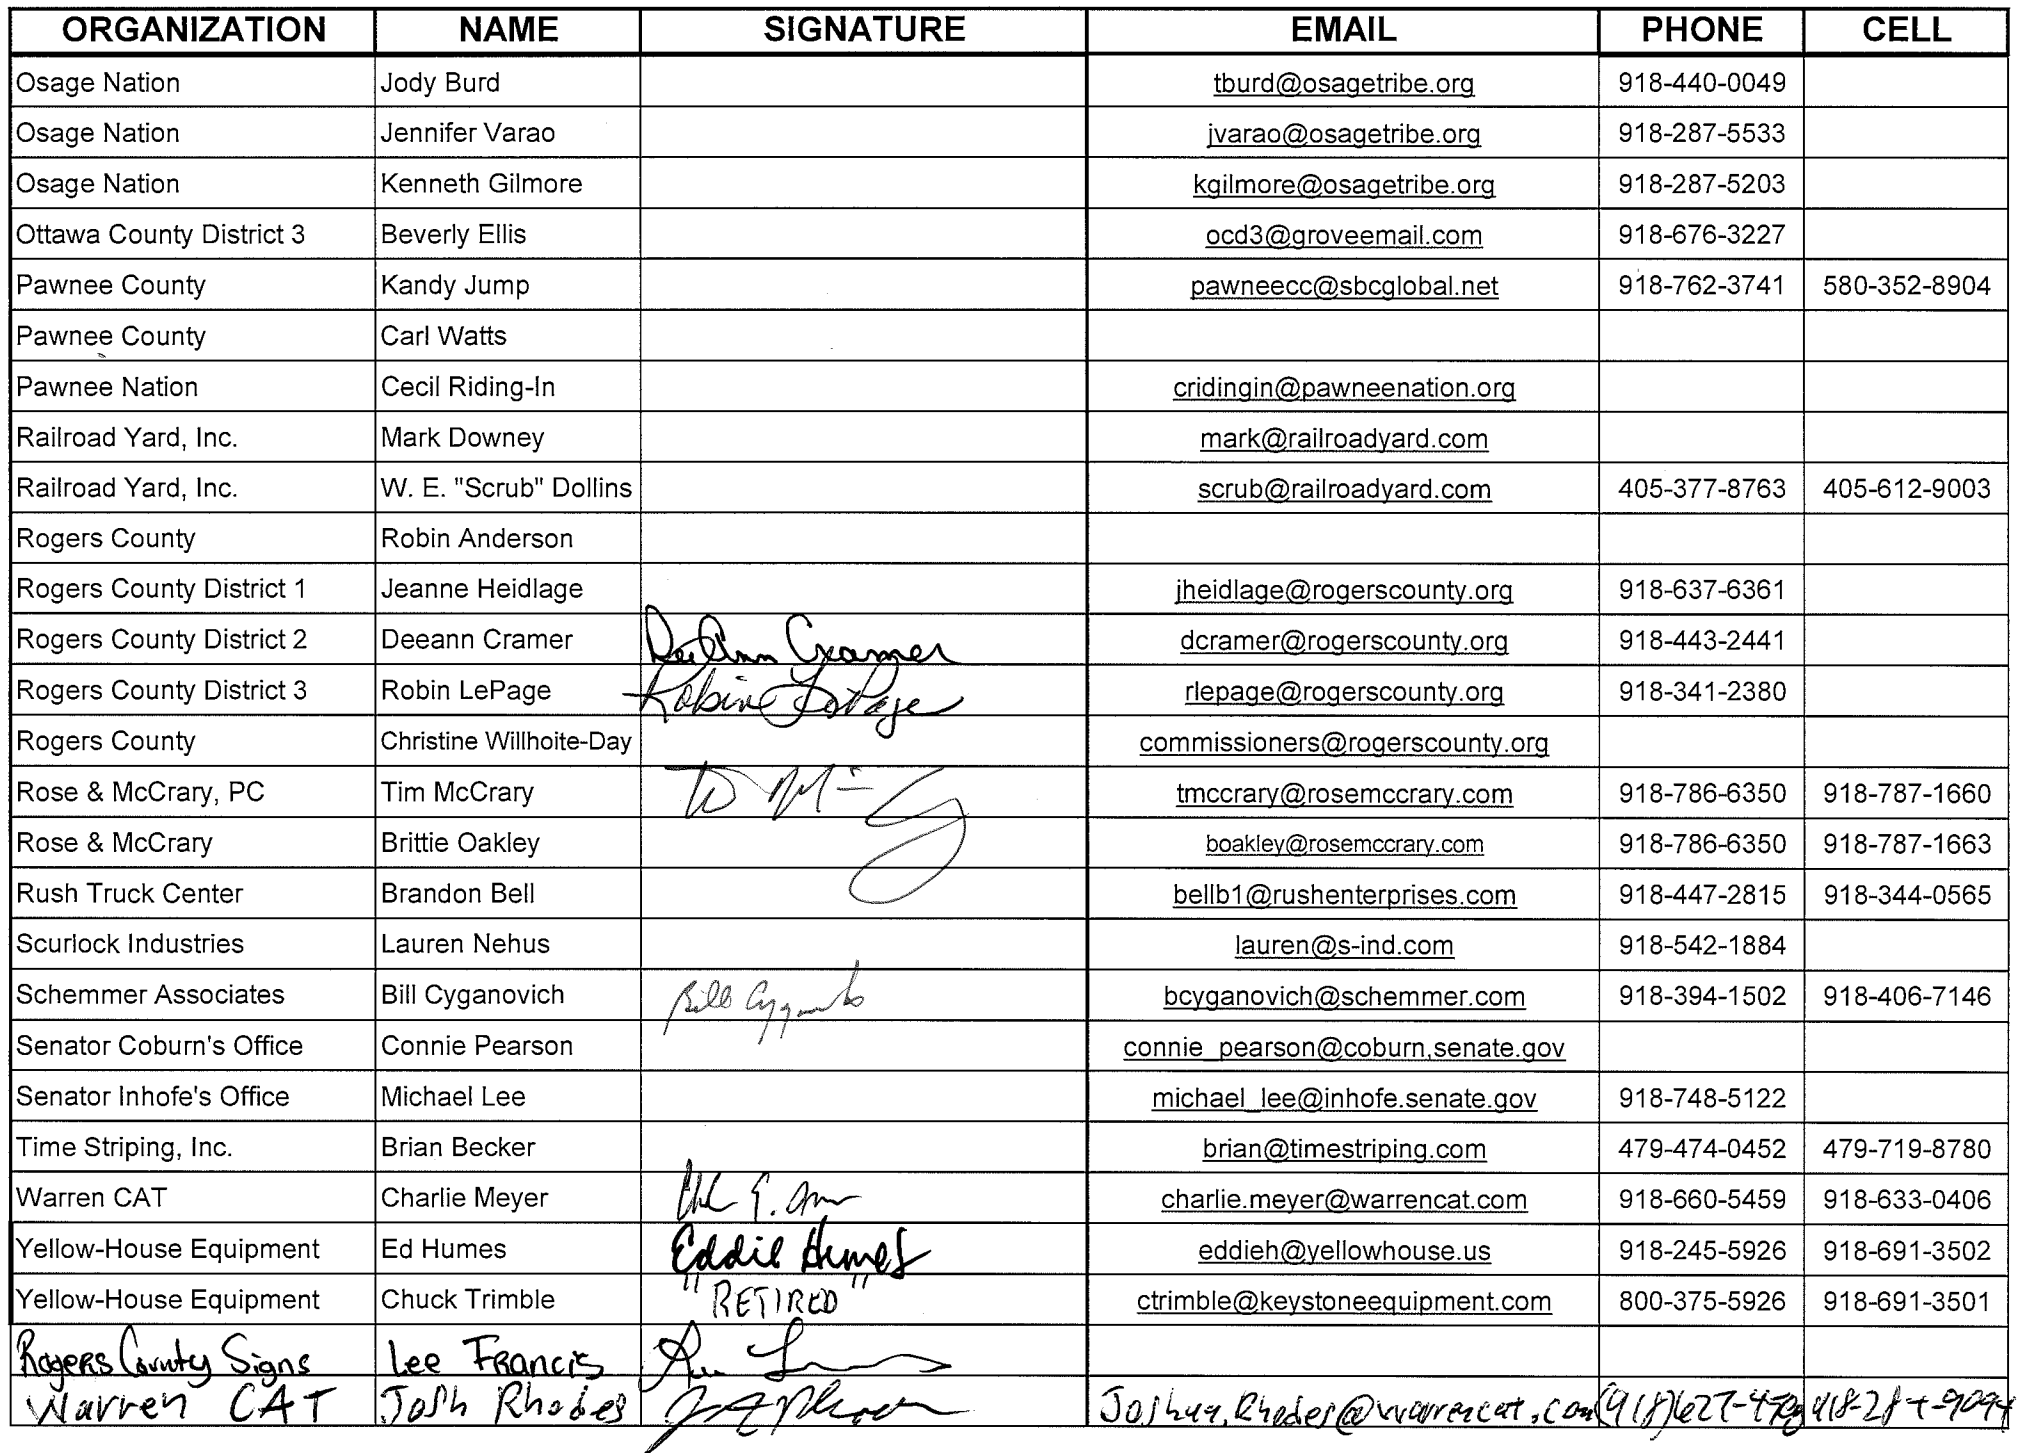 ORGANIZATION NAME SIGNATURE EMAIL PHONE CELL
Osage Nation Jody Burd tburd@osagetribe.org 918-440-0049
Osage Nation Jennifer Varao jvarao@osagetribe.org 918-287-5533
Osage Nation Kenneth Gilmore kgilmore@osagetribe.org 918-287-5203
Ottawa County District 3 Beverly Ellis ocd3@groveemail.com 918-676-3227
Pawnee County Kandy Jump pawneecc@sbcglobal.net 918-762-3741 580-352-8904
Pawnee County Carl Watts
Pawnee Nation Cecil Riding-In cridingin@pawneenation.org
Railroad Yard, Inc. Mark Downey mark@railroadyard.com
Railroad Yard, Inc. W. E. "Scrub" Dollins scrub@railroadyard.com 405-377-8763 405-612-9003
Rogers County Robin Anderson
Rogers County District 1 Jeanne Heidlage jheidlage@rogerscounty.org 918-637-6361
Rogers County District 2 Deeann Cramer DeeAnn Cramer dcramer@rogerscounty.org 918-443-2441
Rogers County District 3 Robin LePage Robin LePage rlepage@rogerscounty.org 918-341-2380
Rogers County Christine Willhoite-Day commissioners@rogerscounty.org
Rose & McCrary, PC Tim McCrary tmccrary@rosemccrary.com 918-786-6350 918-787-1660
Rose & McCrary Brittie Oakley boakley@rosemccrary.com 918-786-6350 918-787-1663
Rush Truck Center Brandon Bell bellb1@rushenterprises.com 918-447-2815 918-344-0565
Scurlock Industries Lauren Nehus lauren@s-ind.com 918-542-1884
Schemmer Associates Bill Cyganovich Bill bcyganovich@schemmer.com 918-394-1502 918-406-7146
Senator Coburn's Office Connie Pearson connie_pearson@coburn,senate.gov
Senator Inhofe's Office Michael Lee michael_lee@inhofe.senate.gov 918-748-5122
Time Striping, Inc. Brian Becker brian@timestriping.com 479-474-0452 479-719-8780
Warren CAT Charlie Meyer charlie.meyer@warrencat.com 918-660-5459 918-633-0406
Yellow-House Equipment Ed Humes Eddie Humes eddieh@yellowhouse.us 918-245-5926 918-691-3502
Yellow-House Equipment Chuck Trimble "RETIRED" ctrimble@keystoneequipment.com 800-375-5926 918-691-3501
Rogers County Signs Lee Francis
Warren CAT Josh Rhodes Joshua.Rhodes@warrencat.com